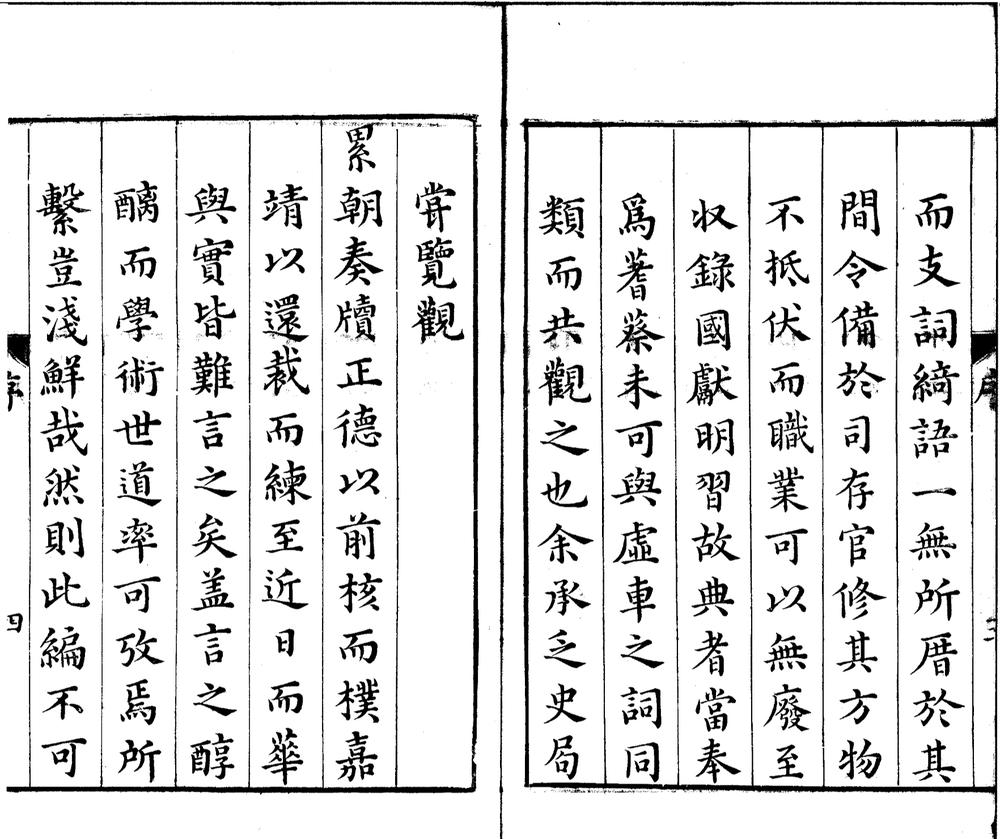 而支詞綺語一無所厝於其
間令備於司存官修其方物
不抵伏而職業可以無廢至
収錄國獻明習故典者當奉
爲蓍蔡未可與虛車之詞同
類而共觀之也余承乏史局
甞覽觀
累朝奏牘正德以前核而樸嘉
靖以還裁而練至近日而華
與實皆難言之矣盖言之醇
醨而學術世道率可攷焉所
繫豈淺鮮哉然則此編不可
序
四